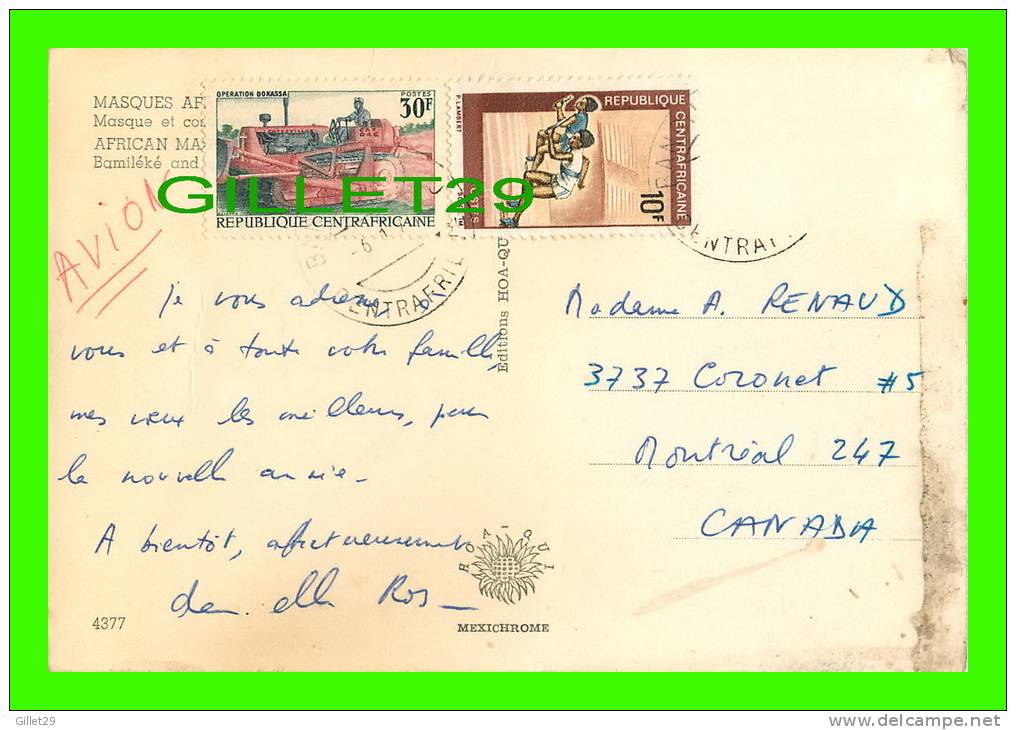 MASQUES AF
Masque et co
AFRICAN MA
Bamiléké and
AVION
OPERATION BOKASSA
POSTES
30F
CATERPILLAR
REPUBLIQUE CENTRAFRICAINE
P. LAMBERT
REPUBLIQUE CENTRAFRICAINE
10F
GILLET29
CENTRAFRI
CENTRAF
Editions HOA-QU
Je vous adresse, à
vous et à toute votre famille,
mes vœux les meilleurs, pour
la nouvelle année.
A bientôt, affectueusement
Ros
Madame A. RENAUD
3737 Coronet #5
Montréal 247
CANADA
HOA-QUI
4377
MEXICHROME
Gillet29
delcampe.net